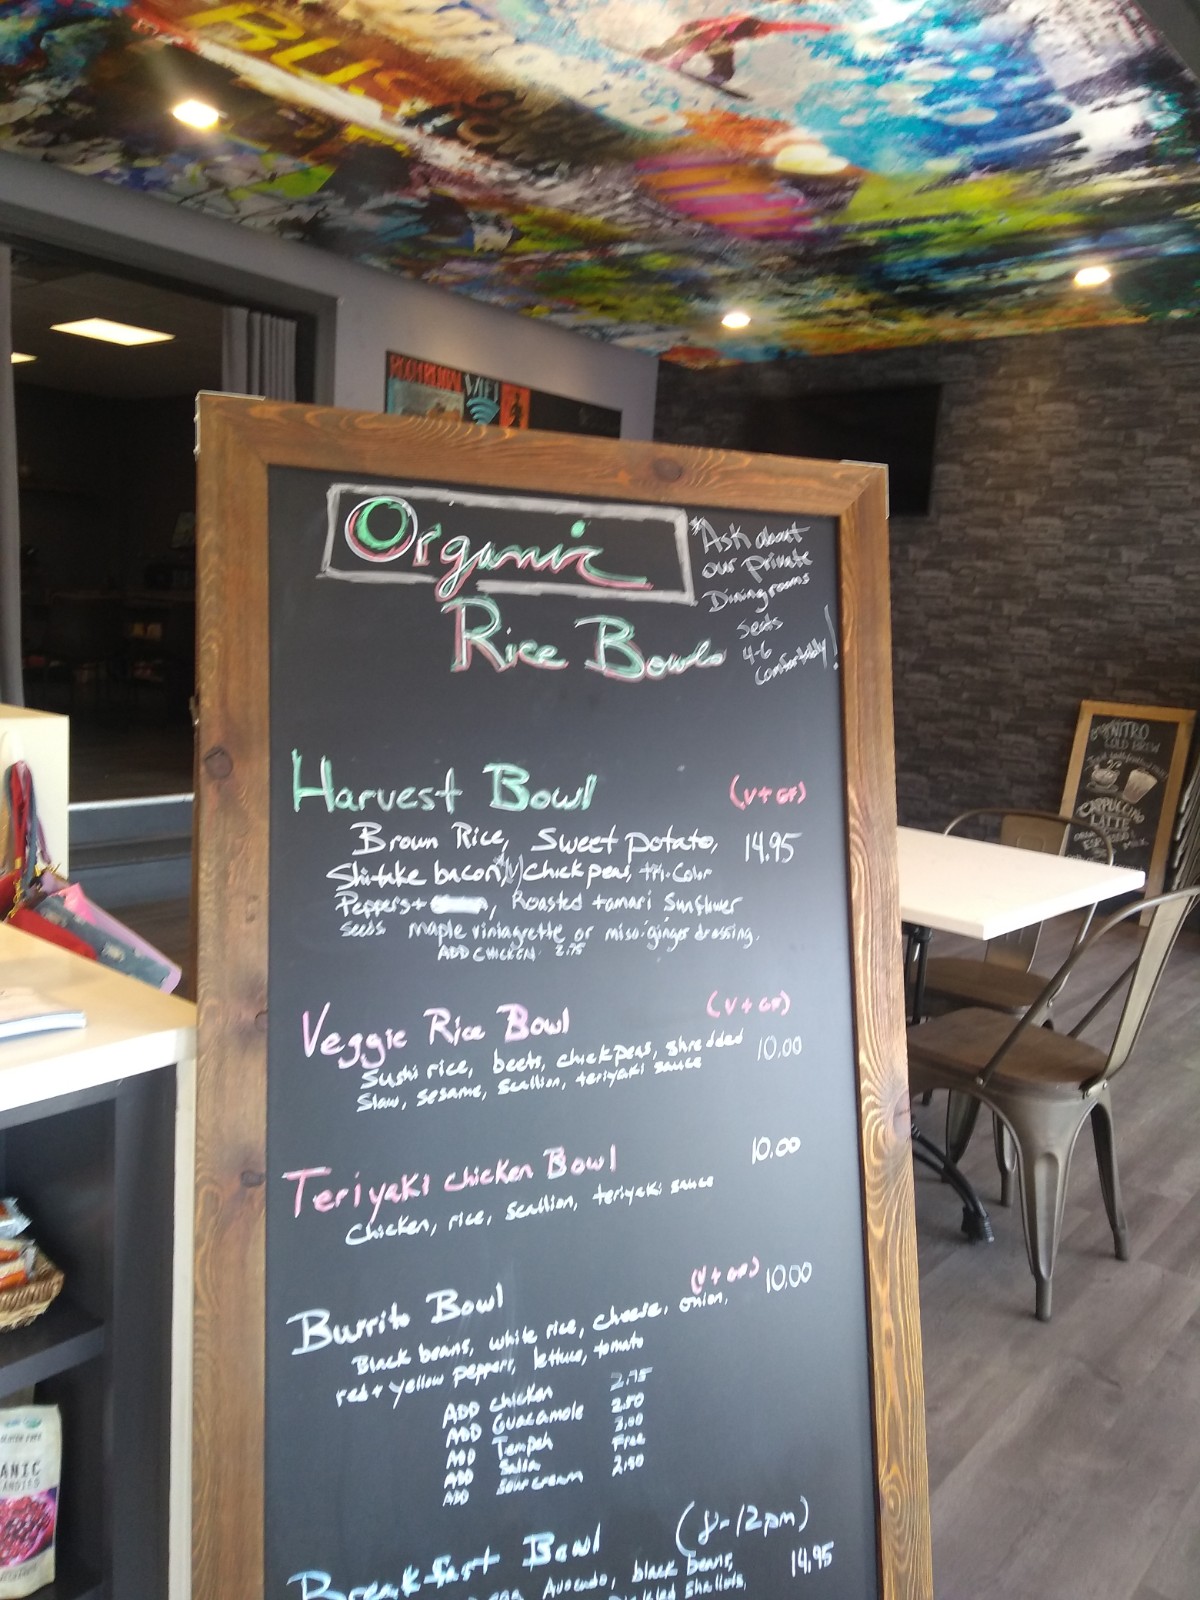 BUS
WIFI
Organic
Rice Bowls
*Ask about
our private
Dining rooms
seats
4-6
comfortably!
Harvest Bowl (V+GF)
Brown Rice, Sweet potato, 14.95
Shitake bacon, chickpeas, tri-color
Peppers +, Roasted tamari Sunflower
seeds maple viniagrette or miso-ginger dressing.
ADD CHICKEN 2.75
Veggie Rice Bowl (V+GF)
Sushi rice, beets, chickpeas, shredded 10.00
Slaw, sesame, scallion, teriyaki sauce
Teriyaki chicken Bowl 10.00
Chicken, rice, scallion, teriyaki sauce
Burrito Bowl (V+GF) 10.00
Black beans, white rice, cheese, onion,
red + yellow peppers, lettuce, tomato
ADD chicken 2.75
ADD Guacamole 2.50
ADD Tempeh 3.00
ADD Salsa Free
ADD sour cream 2.50
Breakfast Bowl (8-12pm)
egg, Avocado, black beans, 14.95
pickled shallots,
NITRO
COLD BREW
CAPPUCCINO
LATTE
MILK
ANIC